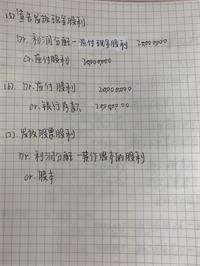 (5) 宣告发放现金股利
Dr. 利润分配 - 应付现金股利 20000000
Cr. 应付股利 20000000
(6). Dr. 应付股利 20000000
Cr. 银行存款 20000000
(7). 发放股票股利
Dr. 利润分配 - 转作股本的股利
Cr. 股本